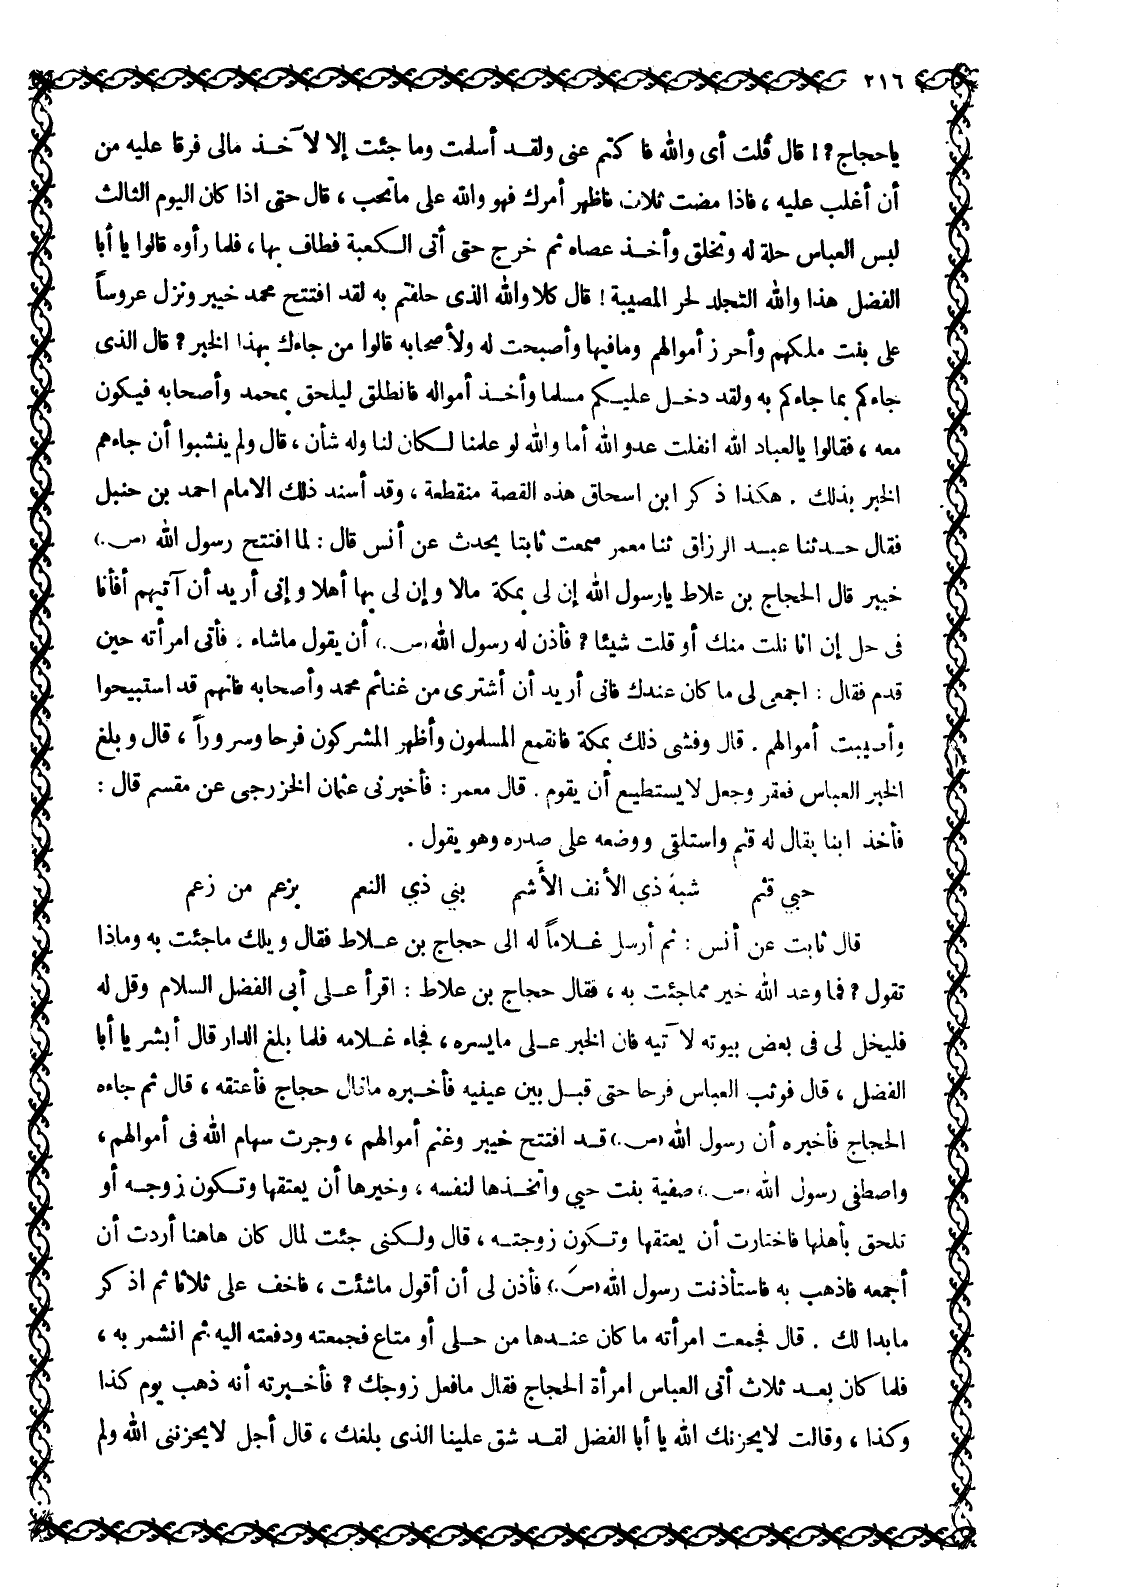 ٢١٦
ياحجاج؟! قال قلت أى والله فاكتم عنى ولقد أسلمت وما جئت إلا لآخذ مالى فرقا عليه من
أن أغلب عليه ، فاذا مضت ثلاث فاظهر أمرك فهو والله على ماتحب ، قال حتى اذا كان اليوم الثالث
لبس العباس حلة له وتخلق وأخذ عصاه ثم خرج حتى أتى الكعبة فطاف بها ، فلما رأوه قالوا يا أبا
الفضل هذا والله التجلد لحر المصيبة ! قال كلا والله الذى حلفتم به لقد افتتح محمد خيبر ونزل عروساً
على بنت ملكهم وأحرز أموالهم ومافيها وأصبحت له ولأصحابه قالوا من جاءك بهذا الخبر ؟ قال الذى
جاءكم بما جاءكم به ولقد دخل عليكم مسلما وأخذ أمواله فانطلق ليلحق بمحمد وأصحابه فيكون
معه ، فقالوا يالعباد الله انفلت عدو الله أما والله لو علمنا لكان لنا وله شأن ، قال ولم ينشبوا أن جاءهم
الخبر بذلك . هكذا ذكر ابن اسحاق هذه القصة منقطعة ، وقد أسند ذلك الامام احمد بن حنبل
فقال حدثنا عبد الرزاق ثنا معمر سمعت ثابتا يحدث عن أنس قال : لما افتتح رسول الله (ص.)
خيبر قال الحجاج بن علاط يارسول الله إن لى بمكة مالا وإن لى بها أهلا وإنى أريد أن آتيهم أفأنا
فى حل إن انا نلت منك أو قلت شيئا ؟ فأذن له رسول الله (ص.) أن يقول ماشاء . فأتى امرأته حين
قدم فقال : اجمعى لى ما كان عندك فانى أريد أن أشترى من غنائم محمد وأصحابه فانهم قد استبيحوا
وأصيبت أموالهم . قال وفشى ذلك بمكة فانقمع المسلمون وأظهر المشركون فرحا وسروراً ، قال وبلغ
الخبر العباس فعقر وجعل لايستطيع أن يقوم . قال معمر : فأخبرنى عثمان الخزرجى عن مقسم قال :
فأخذ ابنا يقال له قثم واستلقى ووضعه على صدره وهو يقول .
حبي قثم شبهَ ذي الأنف الأَشم بني ذي النعم بزعم من زعم
قال ثابت عن أنس : ثم أرسل غلاماً له الى حجاج بن علاط فقال ويلك ماجئت به وماذا
تقول ؟ فما وعد الله خير مماجئت به ، فقال حجاج بن علاط : اقرأ على أبى الفضل السلام وقل له
فليخل لى فى بعض بيوته لآتيه فان الخبر على مايسره ، فجاء غلامه فلما بلغ الدار قال أبشر يا أبا
الفضل ، قال فوثب العباس فرحا حتى قبل بين عينيه فأخبره ماقال حجاج فأعتقه ، قال ثم جاءه
الحجاج فأخبره أن رسول الله (ص.) قد افتتح خيبر وغنم أموالهم ، وجرت سهام الله فى أموالهم ،
واصطفى رسول الله (ص.) صفية بنت حيي واتخذها لنفسه ، وخيرها أن يعتقها وتكون زوجه أو
تلحق بأهلها فاختارت أن يعتقها وتكون زوجته ، قال ولكنى جئت لمال كان هاهنا أردت أن
أجمعه فاذهب به فاستأذنت رسول الله (ص.) فأذن لى أن أقول ماشئت ، فاخف على ثلاثا ثم اذكر
مابدا لك . قال فجمعت امرأته ما كان عندها من حلى أو متاع فجمعته ودفعته اليه ثم انشمر به ،
فلما كان بعد ثلاث أتى العباس امرأة الحجاج فقال مافعل زوجك ؟ فأخبرته أنه ذهب يوم كذا
وكذا ، وقالت لايحزنك الله يا أبا الفضل لقد شق علينا الذى بلغك ، قال أجل لايحزننى الله ولم